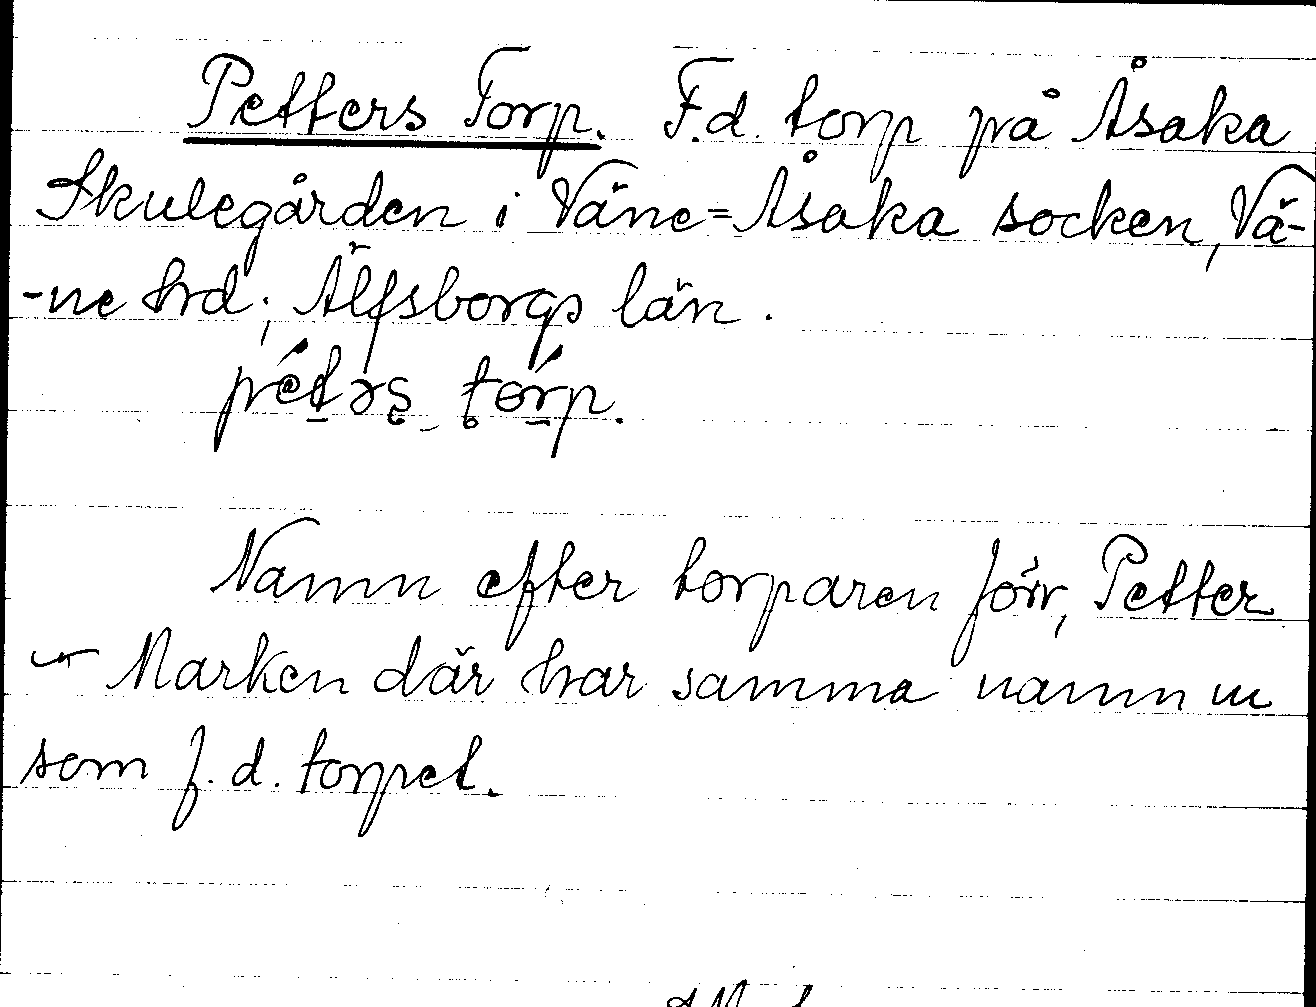 Petters Torp. F.d. torp på Åsaka
Skulegården i Väne=Åsaka socken, Vä-
-ne hrd; Älfsborgs län.
pét̠əs̬ to̠rp.
Namn efter torparen förr, Petter
– Marken där har samma namn
som f.d. torpet.